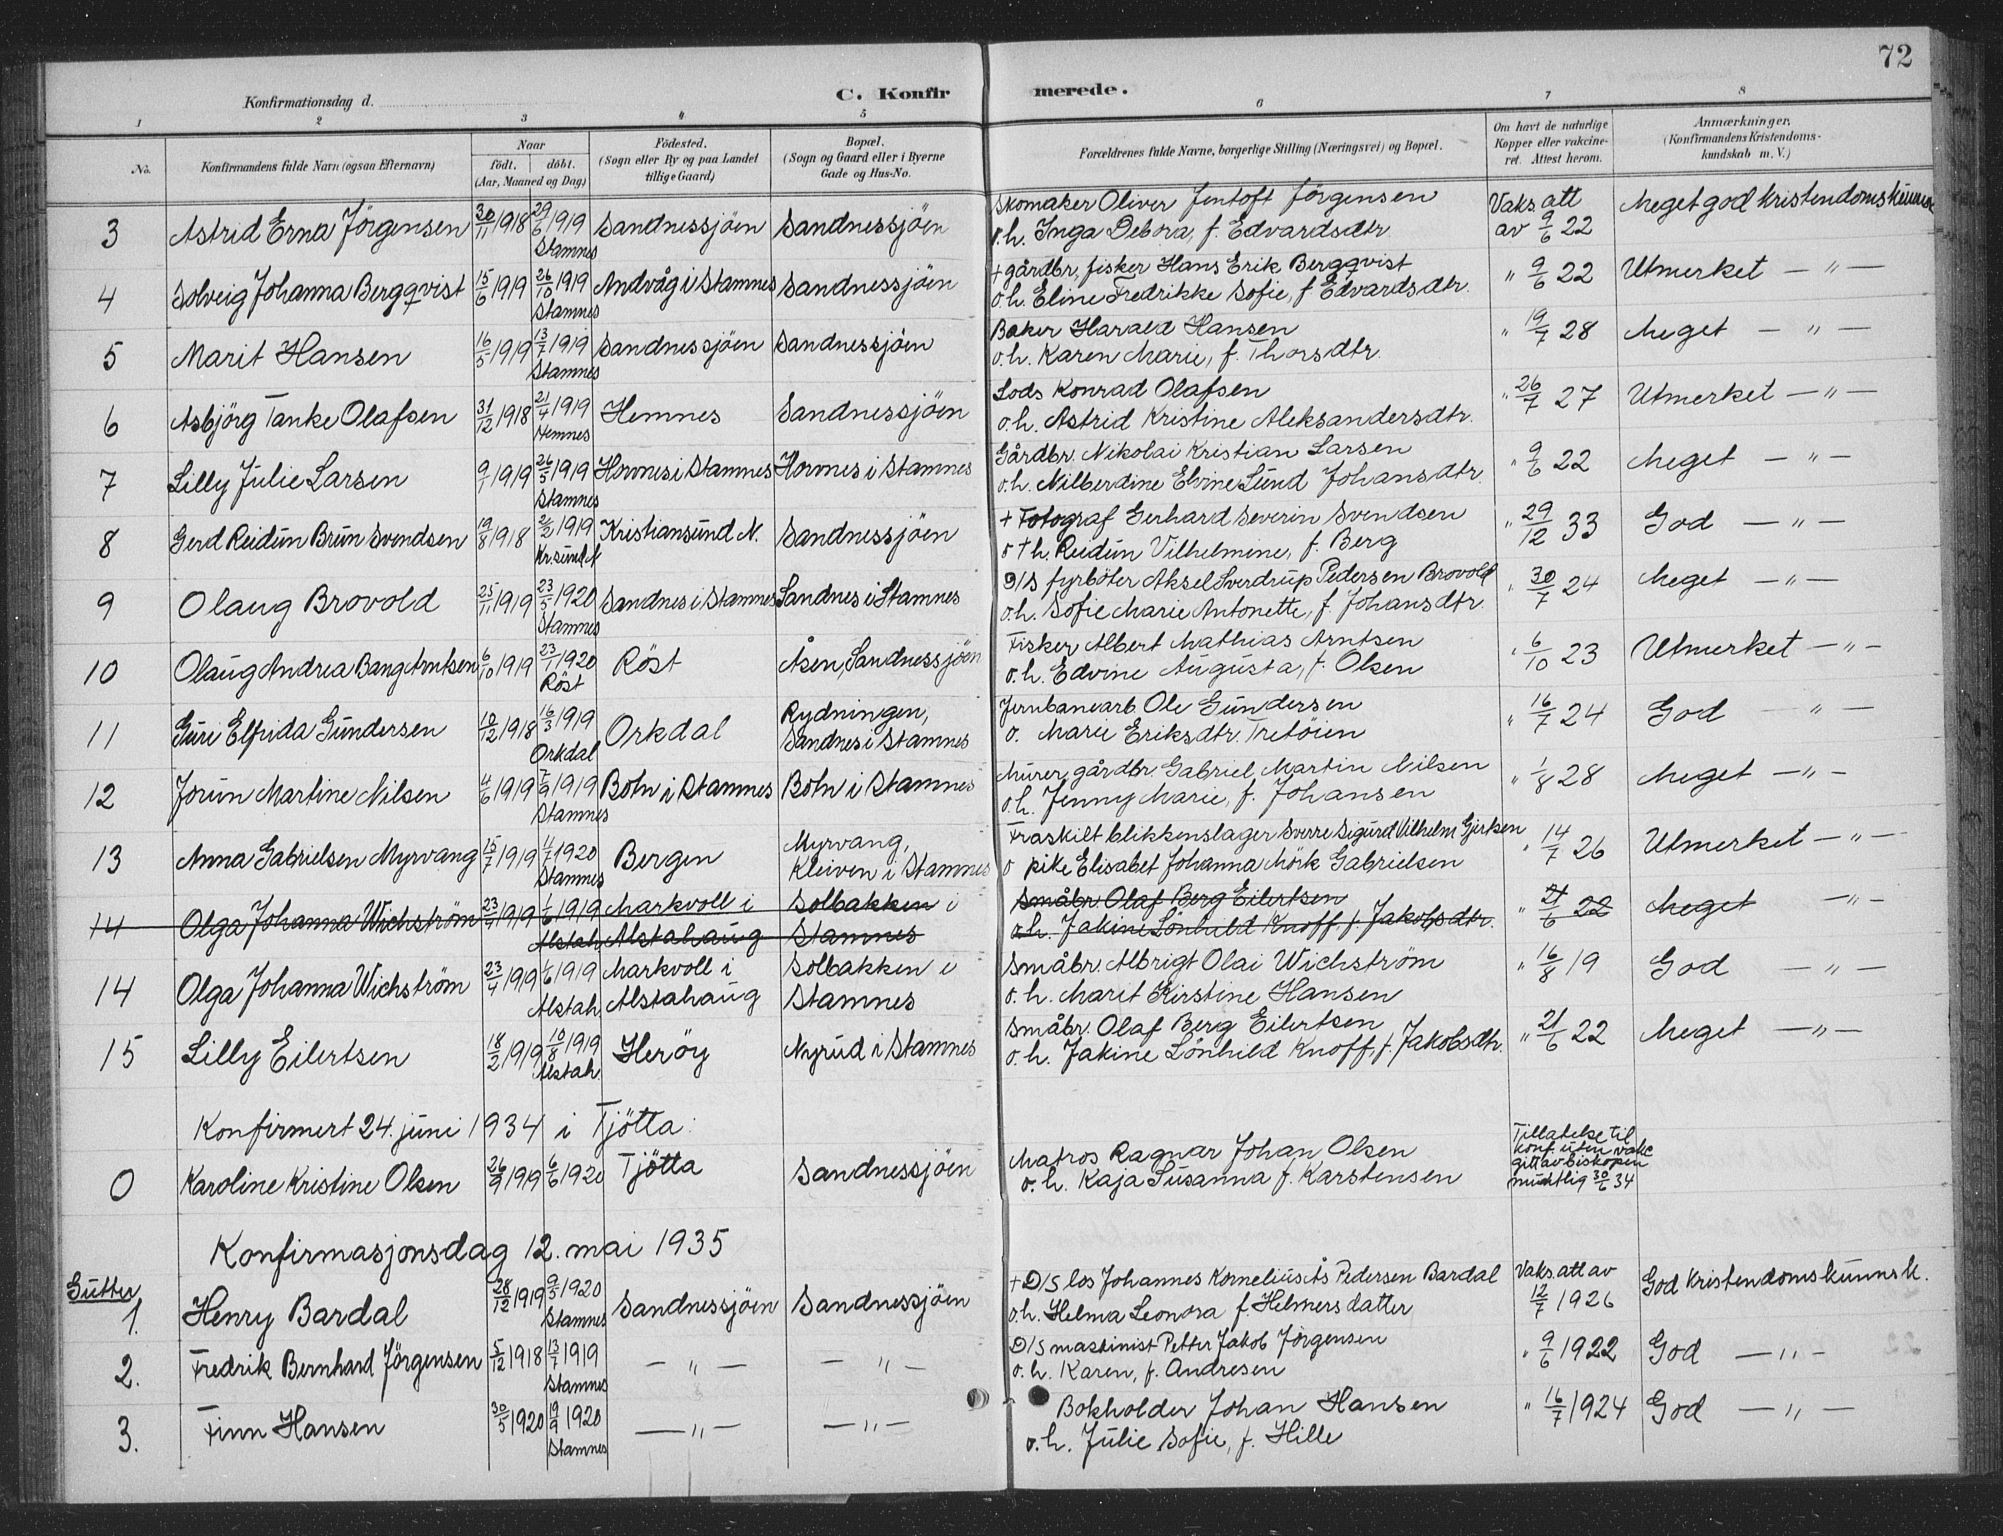 72
Konfirmationsdag d.
C. Konfirmerede.
1 2 3 4 5 6 7 8
No. Konfirmandens fulde Navn (ogsaa Efternavn) Naar født. døbt. (Aar, Maaned og Dag) Födested. (Sogn eller By og paa Landet tillige Gaard) Bopæl. (Sogn og Gaard eller i Byerne Gade og Hus-No. Forældrenes fulde Navne, borgerlige Stilling (Næringsvei) og Bopæl. Om havt de naturlige Kopper eller vakcineret. Attest herom. Anmærkninger. (Konfirmandens Kristendomskundskab m. V.)
3 Astrid Erna Jörgensen 30/11 1918 29/6 1919 Stamnes Sandnessjöen Sandnessjöen Skomaker Oliver Jentoft Jörgensen
o.h. Inga Debora, f. Edvardsdtr. Vaks. att av 9/6 22 Meget god kristendomskunnsk
4 Solveig Johanna Bergqvist 15/6 1919 26/10 1919 Stamnes Andvåg i Stamnes Sandnessjöen + gårdbr., fisker Hans Erik Bergqvist
o.h. Eline Fredrikke Sofie, f. Edvardsdtr. " 9/6 22 Utmerket — " —
5 Marit Hansen 16/5 1919 13/7 1919 Stamnes Sandnessjöen Sandnessjöen Baker Harald Hansen
o.h. Karen Marie, f. Thorsdtr. " 19/7 28 Meget — " —
6 Asbjörg Tanke Olafsen 31/12 1918 21/4 1919 Hemnes Hemnes Sandnessjöen Lods Konrad Olafsen
o.h. Astrid Kristine Aleksandersdtr. " 26/7 27 Utmerket — " —
7 Lilly Julie Larsen 9/1 1919 26/5 1919 Stamnes Hovnes i Stamnes Hovnes i Stamnes Gårdbr. Nikolai Kristian Larsen
o.h. Nilberdine Elvine Lund Johansdtr. " 9/6 22 Meget — " —
8 Gerd Reidun Brun Svendsen 19/8 1918 2/2 1919 Kr.sund N Kristiansund N. Sandnessjöen + Fotograf Gerhard Severin Svendsen
o + h. Reidun Vilhelmine, f. Berg " 29/12 33 God — " —
9 Olaug Brovold 25/11 1919 23/5 1920 Stamnes Sandnes i Stamnes Sandnes i Stamnes D/S fyrböter Aksel Sverdrup Pedersen Brovold
o.h. Sofie Marie Antonette, f. Johansdtr. " 30/7 24 Meget — " —
10 Olaug Andrea Bang Arntsen 6/10 1919 23/1 1920 Röst Röst Åsen, Sandnessjöen Fisker Albert Mathias Arntsen
o.h. Edvine Augusta, f. Olsen " 6/10 23 Utmerket — " —
11 Guri Elfrida Gundersen 10/12 1918 16/3 1919 Orkdal Orkdal Rydningen, Sandnes i Stamnes Jernbanearb. Ole Gundersen
o. Marie Eriksdtr. Tretöien " 16/7 24 God — " —
12 Jorun Martine Nilsen 4/6 1919 7/9 1919 Stamnes Botn i Stamnes Botn i Stamnes Murer, gårdbr. Gabriel Martin Nilsen
o.h. Jenny Marie, f. Johansen " 1/8 28 Meget — " —
13 Anna Gabrielsen Myrvang 15/7 1919 11/7 1920 Stamnes Bergen Myrvang, Kleiven i Stamnes Fraskilt blikkenslager Sverre Sigurd Vilhelm Gjirksen
o pike Elisabet Johanna Mörk Gabrielsen " 14/7 26 Utmerket — " —
14 Olga Johanna Wichström 23/4 1919 1/6 1919 Alstah. Markvoll i Alstahaug Solbakken i Stamnes Småbr. Olaf Berg Eilertsen
o.h. Jakine Lönhild Knoff, f. Jakobsdtr. " 21/6 22 Meget — " —
14 Olga Johanna Wichström 23/4 1919 1/6 1919 Alstah. Markvoll i Alstahaug Solbakken i Stamnes Småbr. Albrigt Olai Wichström
o.h. Marit Kirstine Hansen " 16/8 19 God — " —
15 Lilly Eilertsen 18/2 1919 10/8 1919 Alstah. Heröy Myrud i Stamnes Småbr. Olaf Berg Eilertsen
o.h. Jakine Lönhild Knoff, f. Jakobsdtr. " 21/6 22 Meget — " —
Konfirmert 24. juni 1934 i Tjötta:
0 Karoline Kristine Olsen 26/9 1919 6/6 1920 Tjötta Sandnessjöen Matros Ragnar Johan Olsen
o.h. Kaja Susanna f. Karstensen Tillatelse til konf. uten vaks gitt av biskopen muntlig 30/6 34
Konfirmasjonsdag 12. mai 1935
Gutter
1. Henry Bardal 28/12 1919 9/5 1920 Stamnes Sandnessjöen Sandnessjöen + D/S los Johannes Kornelius Ås Pedersen Bardal
o.h. Helma Leonora f. Helmersdatter Vaks. att av 12/7 1926 God kristendomskunnsk.
2. Fredrik Bernhard Jörgensen 5/12 1918 13/7 1919 Stamnes — " — — " — D/S maskinist Petter Jakob Jörgensen
o.h. Karen, f. Andresen " 9/6 1922 God — " —
3. Finn Hansen 30/5 1920 19/9 1920 Stamnes — " — — " — Bokholder Johan Hansen
o.h. Julie Sofie, f. Hille " 16/7 1924 God — " —